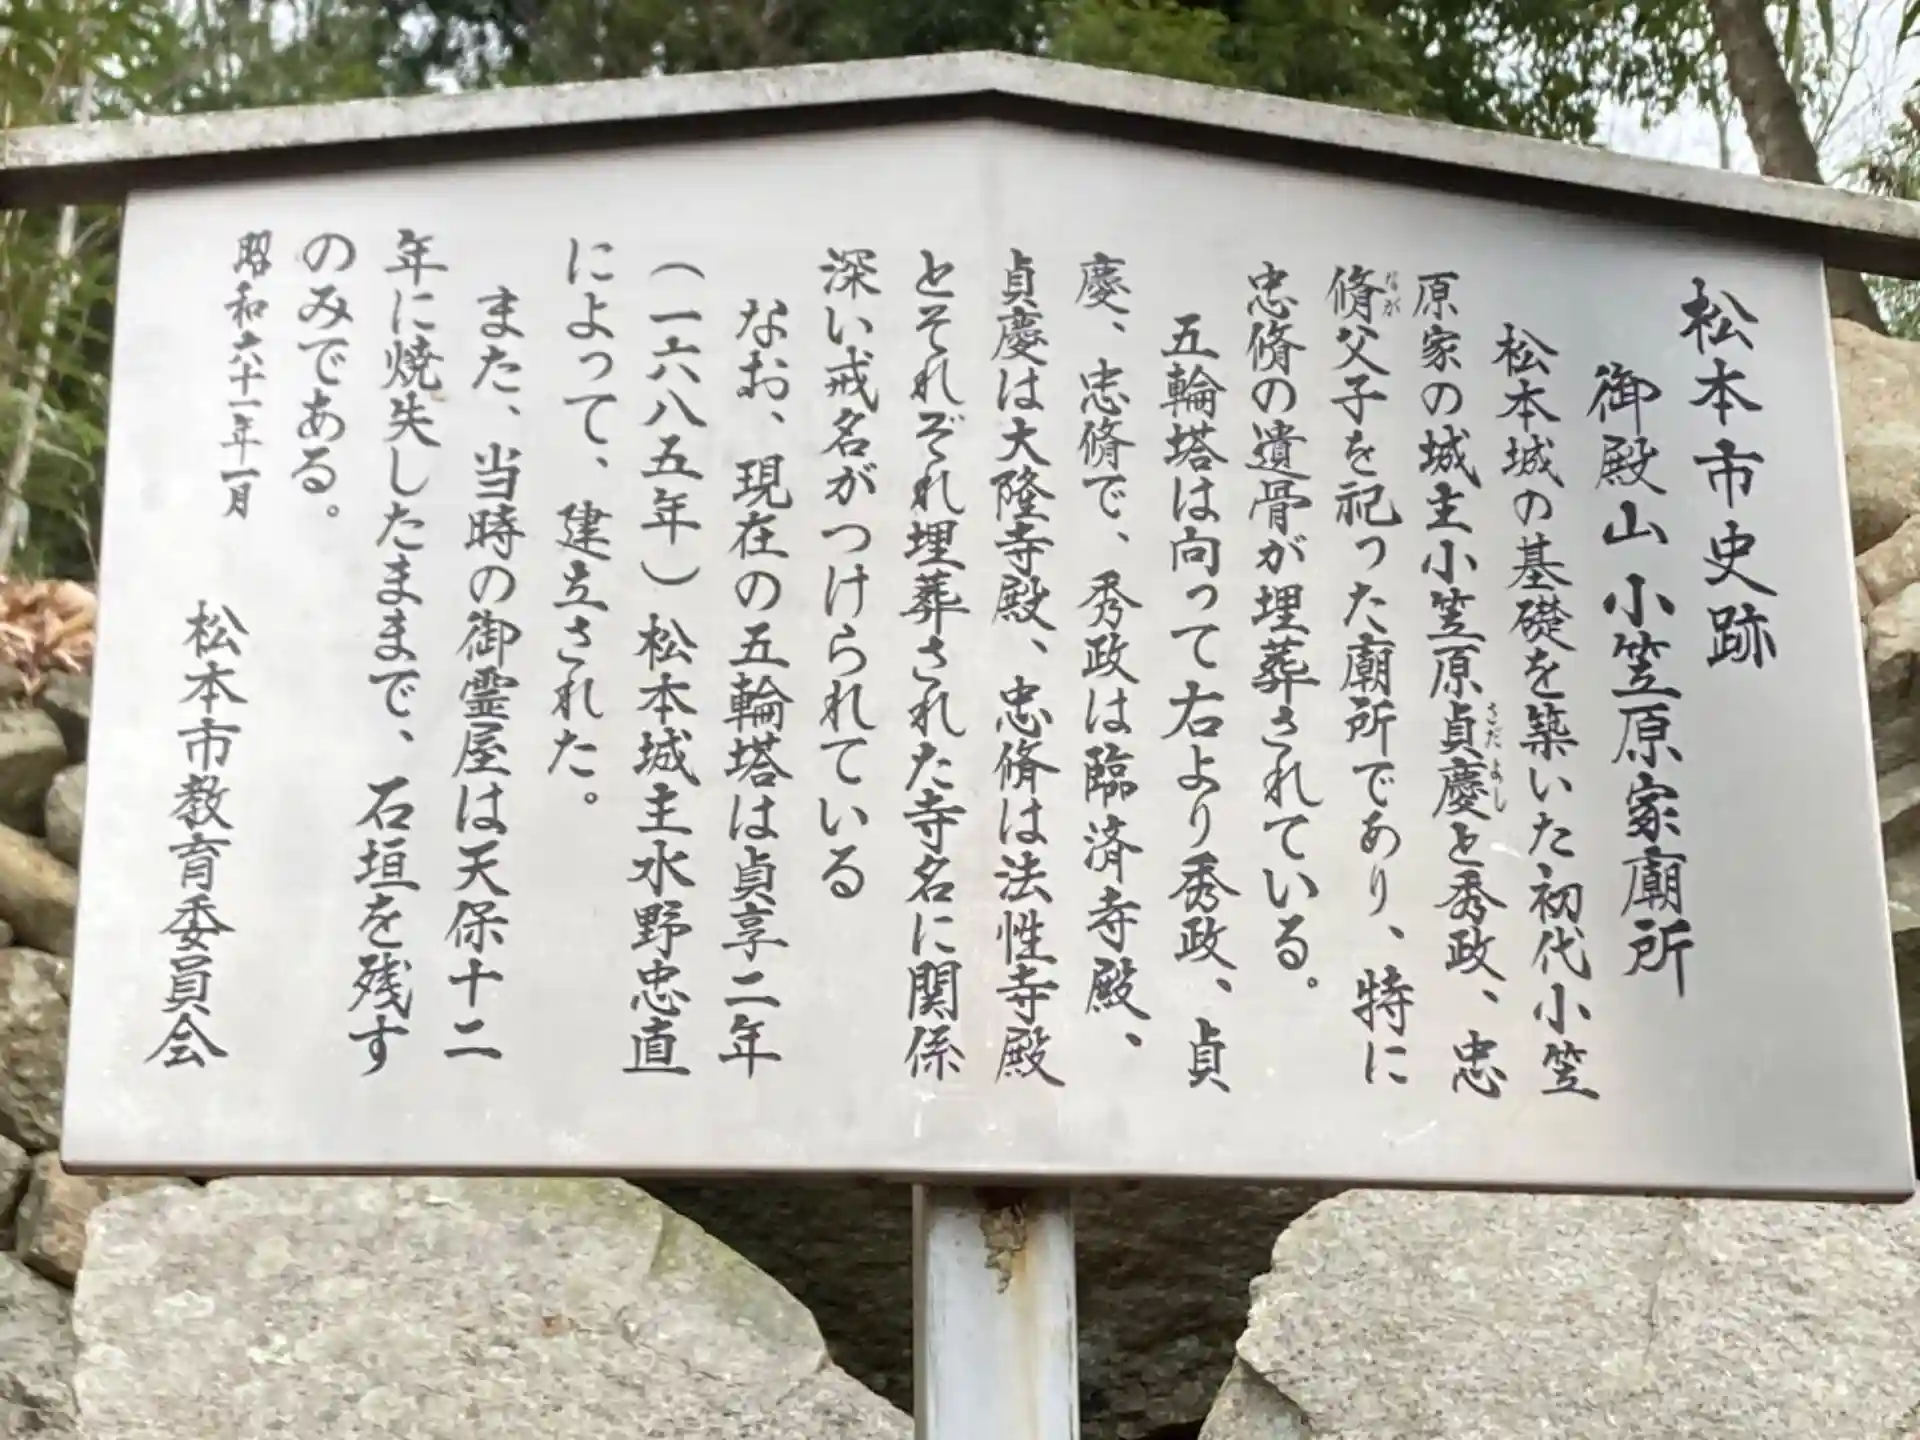 松本市史跡
御殿山小笠原家廟所
松本城の基礎を築いた初代小笠
原家の城主小笠原貞慶と秀政、忠
さだよし
脩父子を祀った廟所であり、特に
なが
忠脩の遺骨が埋葬されている。
五輪塔は向って右より秀政、貞
慶、忠脩で、秀政は臨済寺殿、
貞慶は大隆寺殿、忠脩は法性寺殿
とそれぞれ埋葬された寺名に関係
深い戒名がつけられている
なお、現在の五輪塔は貞享二年
(一六八五年)松本城主水野忠直
によって、建立された。
また、当時の御霊屋は天保十二
年に焼失したままで、石垣を残す
のみである。
昭和六十一年一月
松本市教育委員会